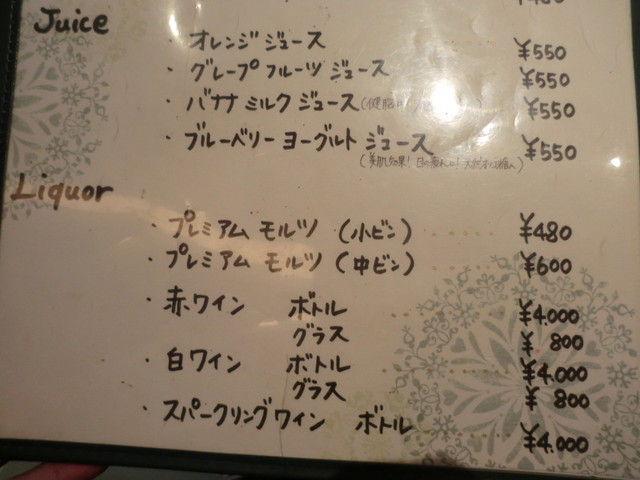 Juice
・オレンジジュース ¥550
・グレープフルーツ ジュース ¥550
・バナナ ミルク ジュース ¥550
・ブルーベリー ヨーグルト ジュース ¥550
(美肌効果!
Liquor
・プレミアム モルツ (小ビン) ........ ¥480
・プレミアム モルツ (中ビン) ........ ¥600
・赤ワイン ボトル .... ¥4.000
グラス ¥ 800
・白ワイン ボトル .... ¥4.000
グラス ¥ 800
・スパークリングワイン ボトル .... ¥4.000